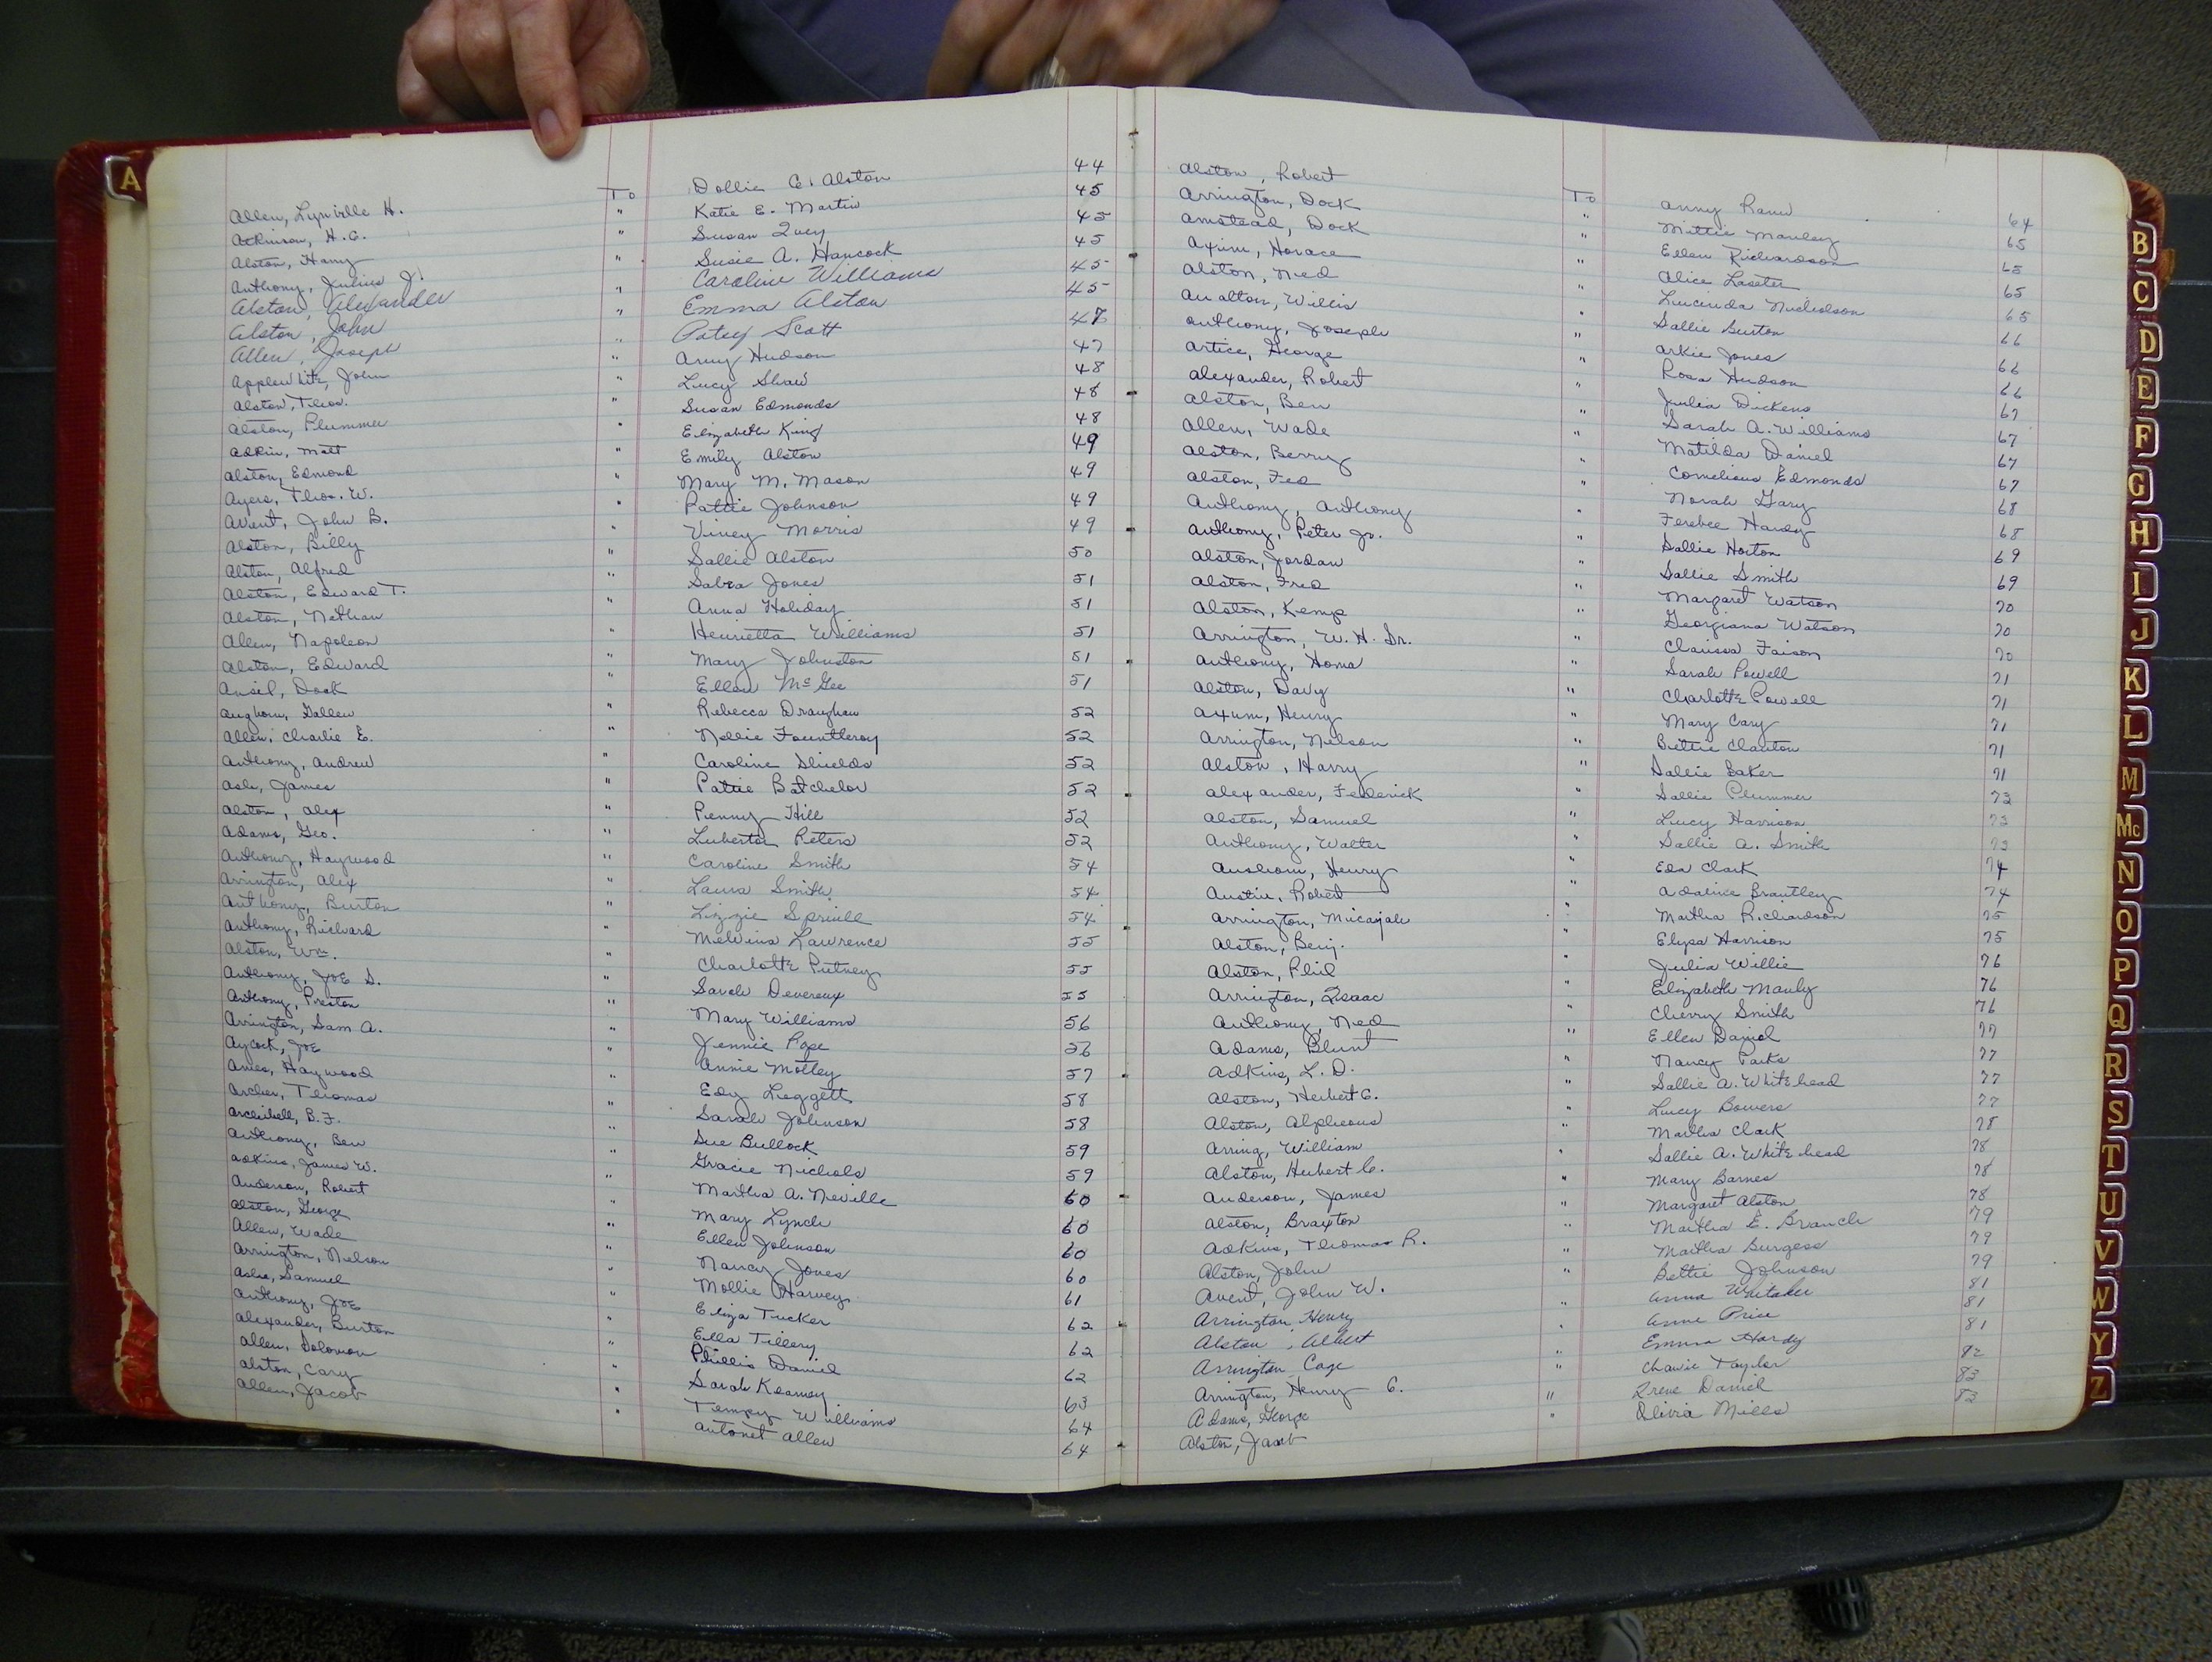 A
Allen, Lynville H. To Dollie C. Alston 44
Atkinson, H.C. " Katie E. Martin 45
Alston, Harry " Susan Ivey 45
Anthony, Julius J. " Susie A. Hancock 45
Alston, Alexander " Caroline Williams 45
Alston, John " Emma Alston 45
Allen, Joseph " Patsy Scott 47
Applewhite, John " Amy Hudson 47
Alston, Thos. " Lucy Shaw 48
Alston, Plummer " Susan Edmonds 48
Adkin, Matt " Elizabeth King 48
Alston, Edmond " Emily Alston 49
Ayers, Thos. W. " Mary M. Mason 49
Avent, John B. " Pattie Johnson 49
Alston, Billy " Viney Morris 49
Alston, Alfred " Sallie Alston 50
Alston, Edward T. " Sabra Jones 51
Alston, Nathan " Anna Holiday 51
Allen, Napoleon " Henrietta Williams 51
Alston, Edward " Mary Johnston 51
Ansil, Dock " Ellen McGee 51
Anghom, Gallen " Rebecca Draughan 52
Allen, Charlie E. " Nellie Fountleroy 52
Anthony, Andrew " Caroline Shields 52
Ash, James " Pattie Batchelor 52
Alston, Alex " Penny Hill 52
Adams, Geo. " Luberta Peters 52
Anthony, Haywood " Caroline Smith 54
Arrington, Alex " Laura Smith 54
Anthony, Burton " Lizzie Spruill 54
Anthony, Richard " Melvina Lawrence 55
Alston, Wm. " Charlotte Putney 55
Anthony, Joe S. " Sarah Devereux 55
Anthony, Preston " Mary Williams 56
Arrington, Sam A. " Jennie Pope 56
Aycock, Joe " Annie Motley 57
Ames, Haywood " Edy Leggett 58
Archer, Thomas " Sarah Johnson 58
Archibell, B.F. " Sue Bullock 59
Anthony, Ben " Gracie Nichols 59
Adkins, James W. " Martha A. Neville 60
Anderson, Robert " Mary Lynch 60
Alston, George " Ellen Johnson 60
Allen, Wade " Nancy Jones 60
Arrington, Nelson " Mollie Harvey 61
Ashe, Samuel " Eliza Tucker 62
Anthony, Joe " Ella Tillery 62
Alexander, Burton " Phillis Daniel 62
Allen, Solomon " Sarah Kearney 63
Alston, Cary " Tempy Williams 64
Allen, Jacob " Antonet Allen 64
Alston, Robert To Anny Ranw 64
Arrington, Dock " Mittie Manley 65
Amstead, Dock " Ellen Richardson 65
Axim, Horace " Alice Lasster 65
Alston, Ned " Lucinda Nicholson 65
Aualton, Willis " Sallie Burton 66
Anthony, Joseph " Arkie Jones 66
Artice, George " Rosa Hudson 66
Alexander, Robert " Julia Dickens 67
Alston, Ben " Sarah A. Williams 67
Allen, Wade " Matilda Daniel 67
Alston, Berry " Cornelious Edmonds 67
Alston, Fed " Norah Gary 68
Anthony, Anthony " Ferebee Hardy 68
Anthony, Peter Jr. " Sallie Horton 69
Alston, Jordan " Sallie Smith 69
Alston, Fred " Margaret Watson 70
Alston, Kemp " Georgiana Watson 70
Arrington, W. H. Sr. " Clarissa Faison 70
Anthony, Homa " Sarah Powell 71
Alston, Davy " Charlotte Powell 71
Axum, Henry " Mary Cary 71
Arrington, Nelson " Bettie Clanton 71
Alston, Harry " Sallie Baker 71
Alexander, Federick " Sallie Plummer 73
Alston, Samuel " Lucy Harrison 73
Anthony, Walter " Sallie A. Smith 73
Ausbom, Henry " Eda Clark 74
Austin, Robert " Adaline Brantley 74
Arrington, Micajah " Martha Richardson 75
Alston, Benj. " Elysa Harrison 75
Alston, Phil " Julia Willie 76
Arrington, Isaac " Elizabeth Manly 76
Anthony, Ned " Cherry Smith 76
Adams, Blunt " Ellen Daniel 77
Adkins, L. D. " Nancy Parks 77
Alston, Herbert C. " Sallie A. Whitehead 77
Alston, Alpheous " Lucy Bowers 77
Arring, William " Martha Clark 78
Alston, Hubert C. " Sallie A. Whitehead 78
Anderson, James " Mary Barnes 78
Alston, Braxton " Margaret Alston 78
Adkins, Thomas R. " Martha E. Branch 79
Alston, John " Martha Burgess 79
Avent, John W. " Bettie Johnson 79
Arrington Henry " Anna Whitaker 81
Alston, Albert " Anne Price 81
Arrington Cage " Emma Hardy 81
Arrington, Henry C. " Chanie Taylor 82
Adams, George " Irene Daniel 83
Alston, Jacob " Olivia Mills 83
B
C
D
E
F
G
H
I
J
K
L
M
Mc
N
O
P
Q
R
S
T
U
V
W
Y
Z